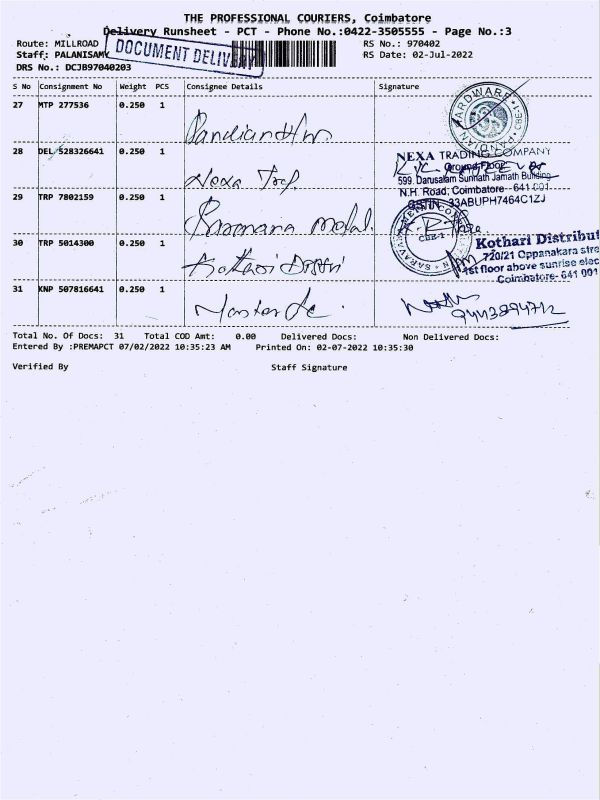 THE PROFESSIONAL COURIERS, Coimbatore
Delivery Runsheet - PCT - Phone No.:0422-3505555 - Page No.:3
Route: MILLROAD
RS No.: 970402
Staff: PALANISAMY
RS Date: 02-Jul-2022
DOCUMENT DELIV
DRS No.: DCJB97040203
S No Consignment No Weight PCS Consignee Details Signature
27 MTP 277536 0.250 1
HARDWARE
28 DEL 528326641 0.250 1 Nexa
NEXA TRADING COMPANY
Ground Floor
599, Darusalam Sunnath Jamath Building
N.H. Road, Coimbatore - 641 001
GSTIN 33ABUPH7464C1ZJ
29 TRP 7802159 0.250 1
30 TRP 5014300 0.250 1
CBE-1
Kothari Distribut
720/21 Oppanakara stre
1st floor above sunrise elec
Coimbatore- 641 001
31 KNP 507816641 0.250 1
9443894712
Total No. Of Docs: 31 Total COD Amt: 0.00 Delivered Docs: Non Delivered Docs:
Entered By :PREMAPCT 07/02/2022 10:35:23 AM Printed On: 02-07-2022 10:35:30
Verified By Staff Signature